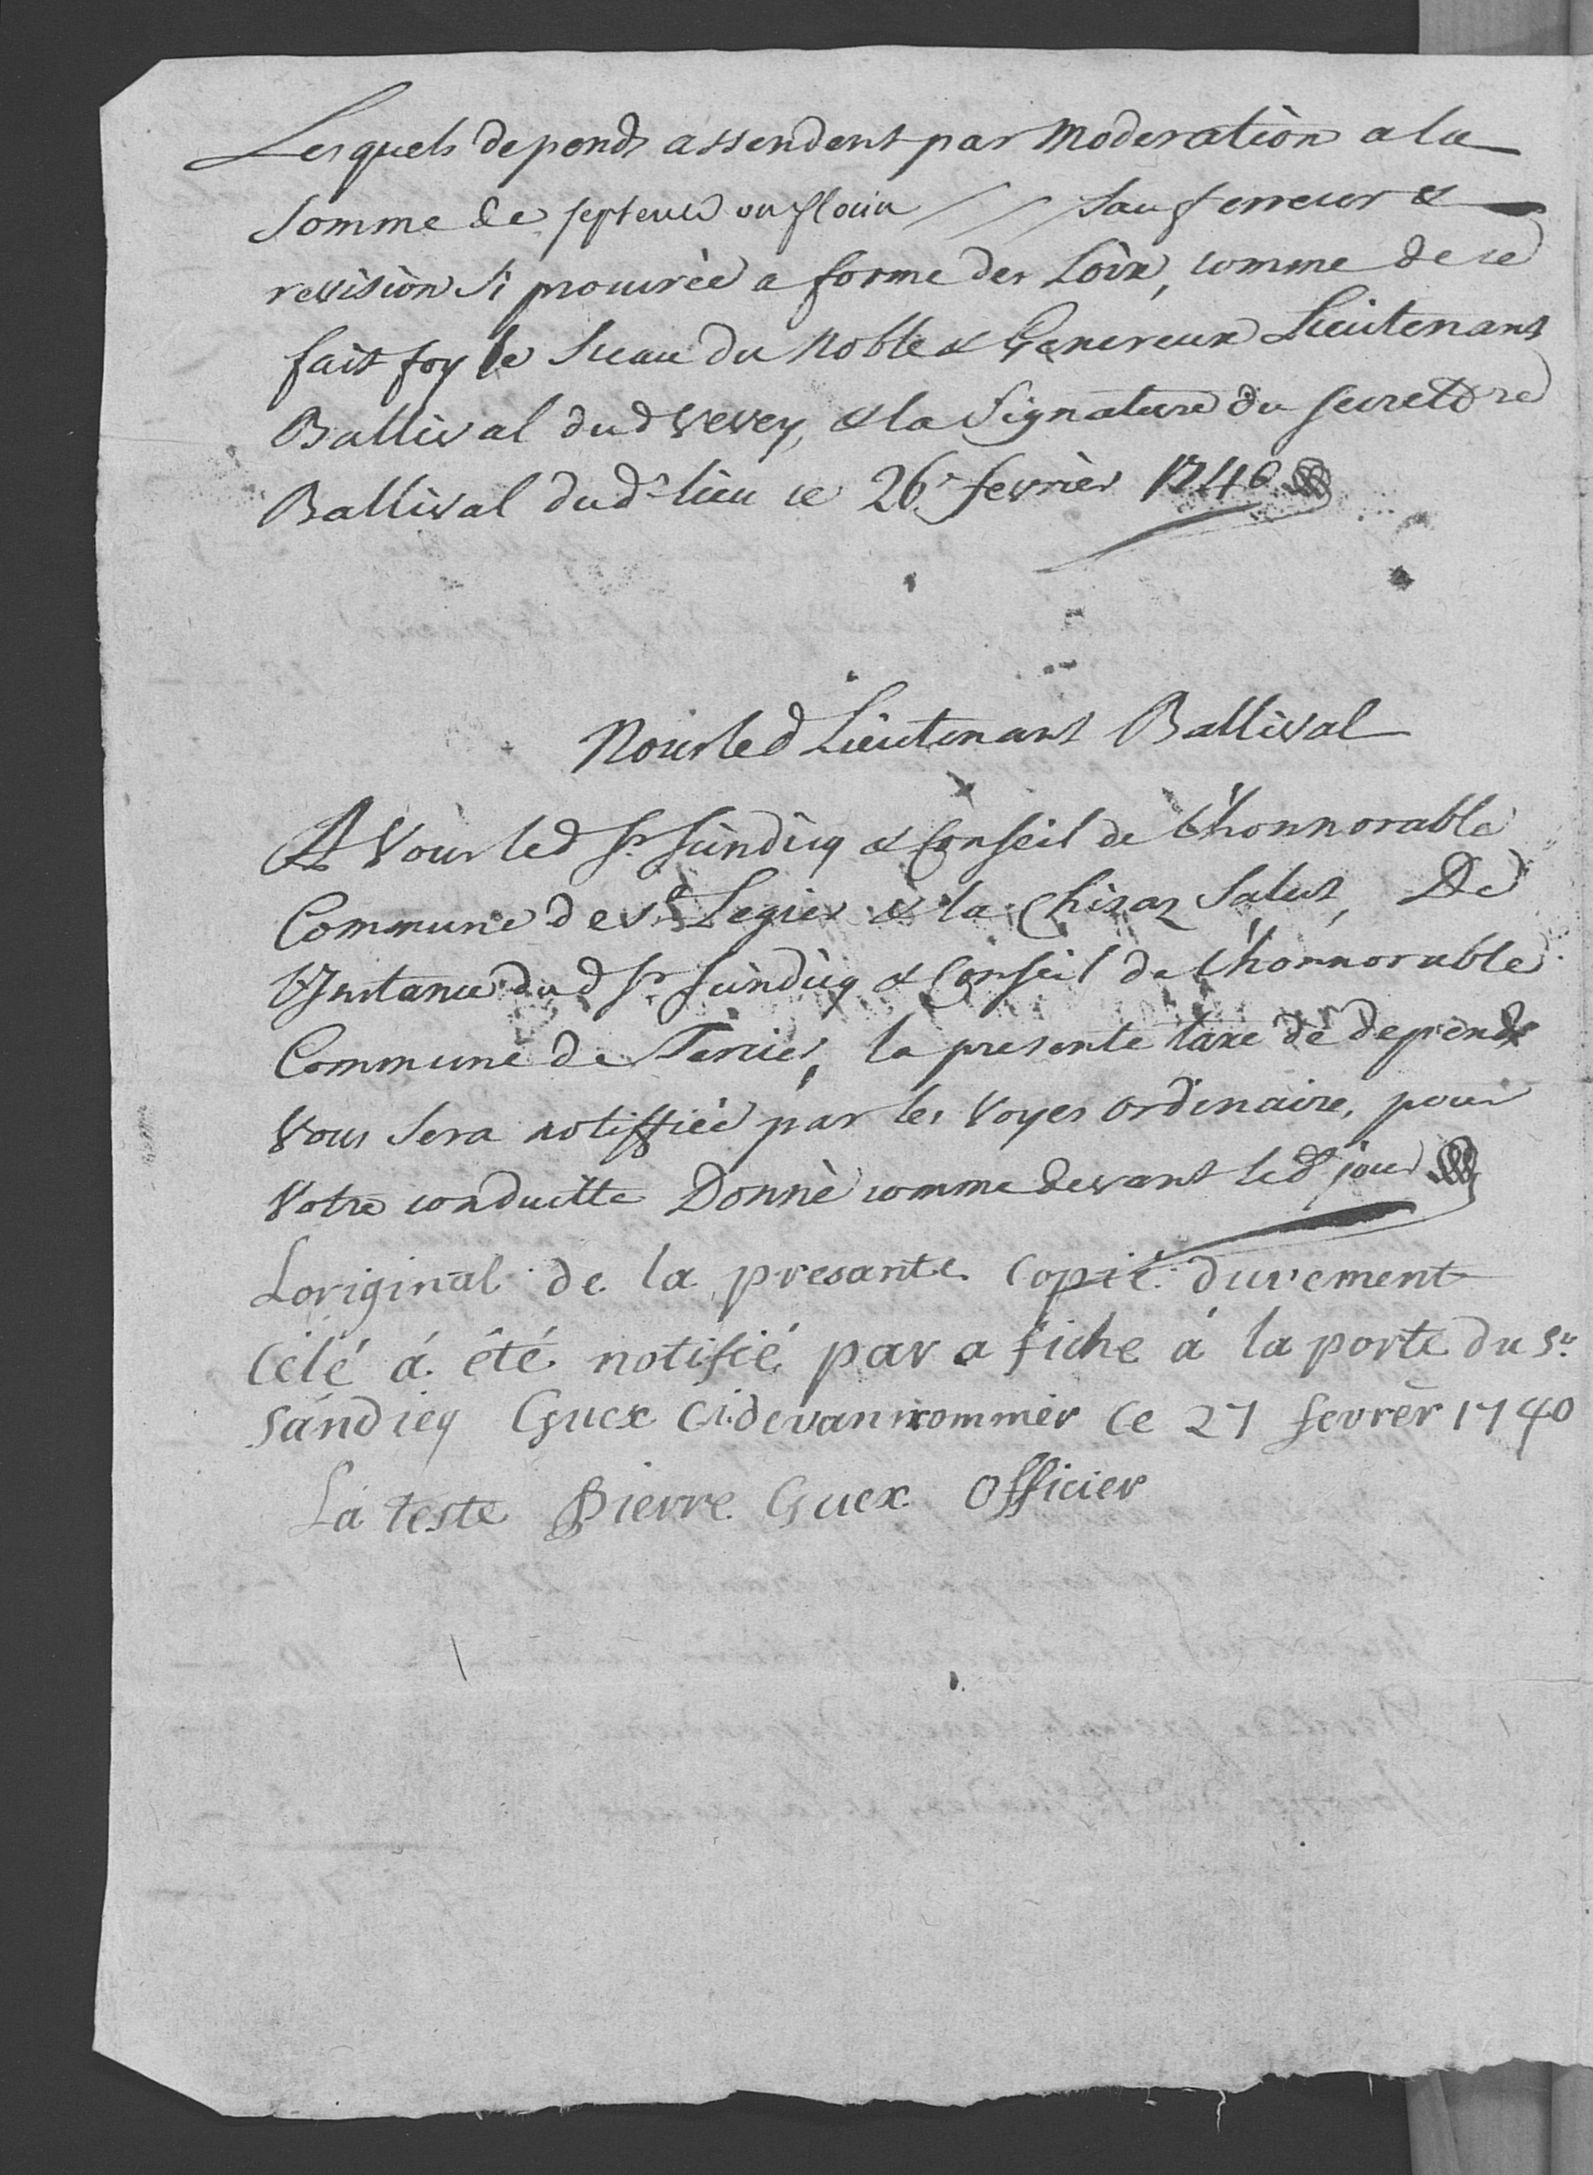 Lesquels depends assendent par Moderatiòn a la
Somme de septente un florin // Sauf erreur &
revisiòn Si prouvèe a forme des Loix, comme de ce
fait foy le Sceau du Noble & Genereux Lieutenant
Ballival dud Vevey, & la Signature du secretre
Ballival dud.t lieu ce 26.e fevrièr 1740
Nous led Lieutenant Ballival
A Vous led Sr. Sindicq & Conseil de L'honnorable
Commune de St. Legier & la Chisaz Salut, De
L'Instance dud Sr. Sindicq & Conseil de L'honnorable
Commune de Tercier, la presente taxe de depends
Vous Sera notiffièe par les Voyes ordinaire, pour
Votre conduitte Donnè comme devant led.t jour
Loriginal de la presante Copié duvement
Célé á été notifié par a fiche á la porte du Sr.
Sandicq Guex Cidevan nommer Ce 27 fevrer 1740
La teste Pierre Guex Officier